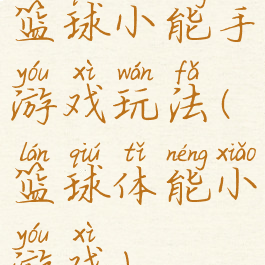 篮球小能手
yóu xì wán fǎ
游戏玩法(
lán qiú tǐ néng xiǎo
篮球体能小
yóu xì
游戏)